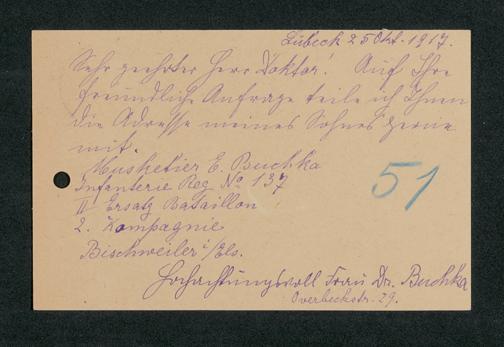 Lübeck 25 Okt. 1917.
Sehr geehrter Herr Doktor! Auf Ihre
freundliche Anfrage teile ich Ihnen
die Adresse meines Sohnes gerne
mit.
Musketier E. Buchka
Infanterie Reg. No 137
II Ersatz Bataillon
2. Kompagnie
Bischweiler i/Els.
51
Hochachtungsvoll Frau Dr. Buchka
Overbeckstr. 29.